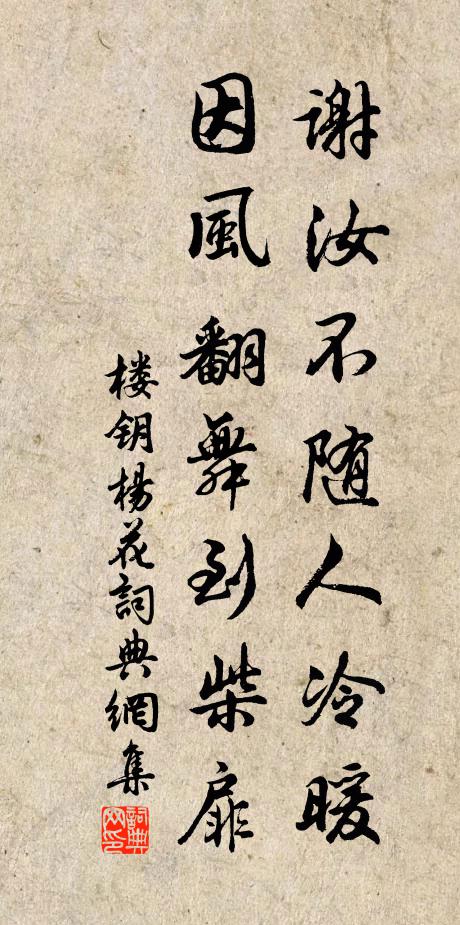 謝汝不随人冷暖
因風翻舞到柴扉
楼钥楊花詞典網集
詞典
网印